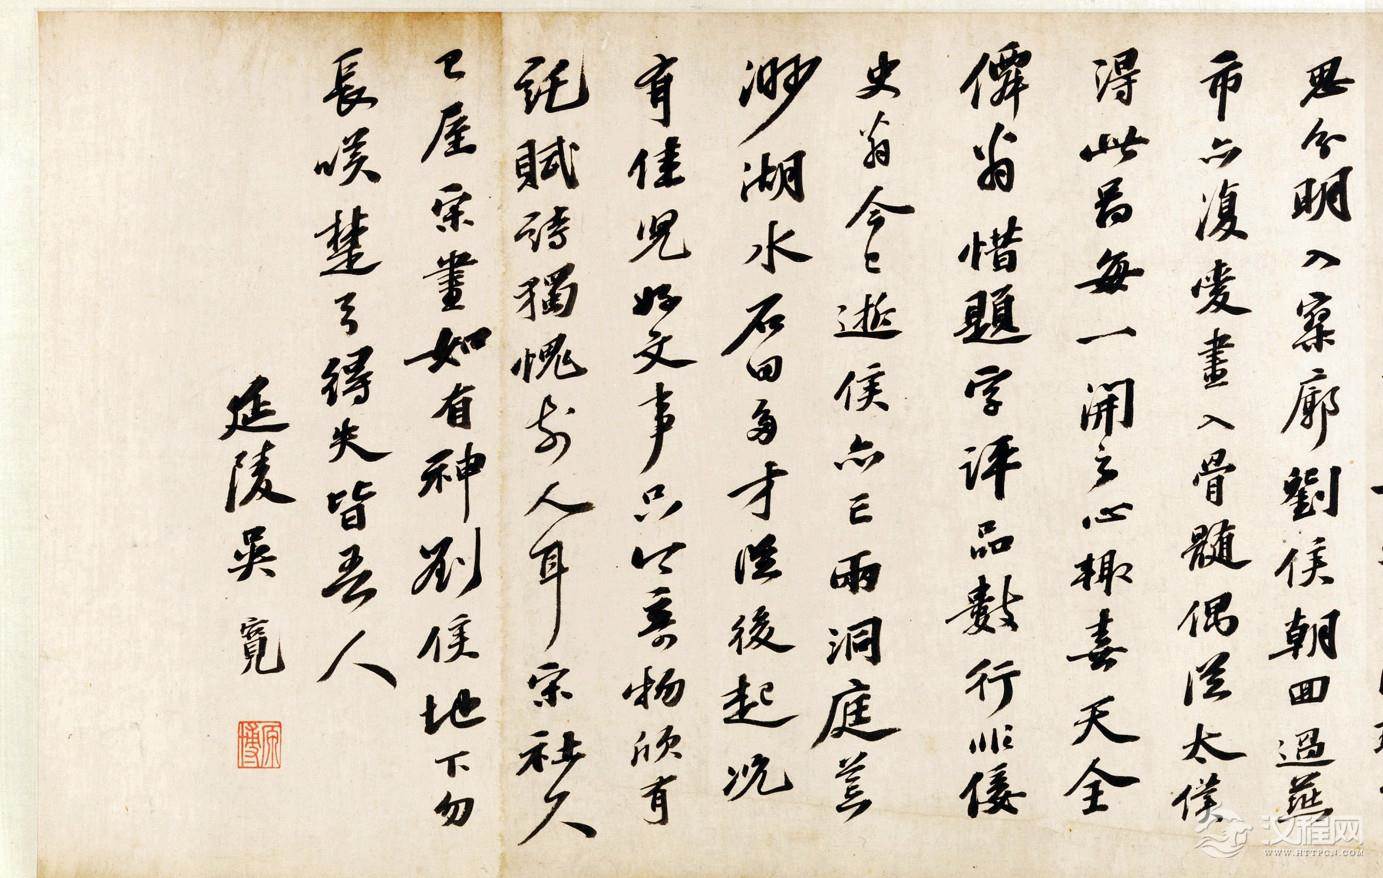 思分明入寥廓劉侯朝回過燕
市亦復愛畫入骨髓偶從太僕
得此啚每一開之心輙喜天全
僊翁惜題字評品數行非倭
史翁今已逝侯亦亡兩洞庭荒
渺湖水石田多才從後起況
有佳兒好文事只今物頗有
託賦詩獨愧前人耳宋社久
已屋宋畫如有神劉侯地下勿
長嘆楚弓得失皆吾人
延陵吳寬
原博
汉程网
WWW.HTTPCN.COM